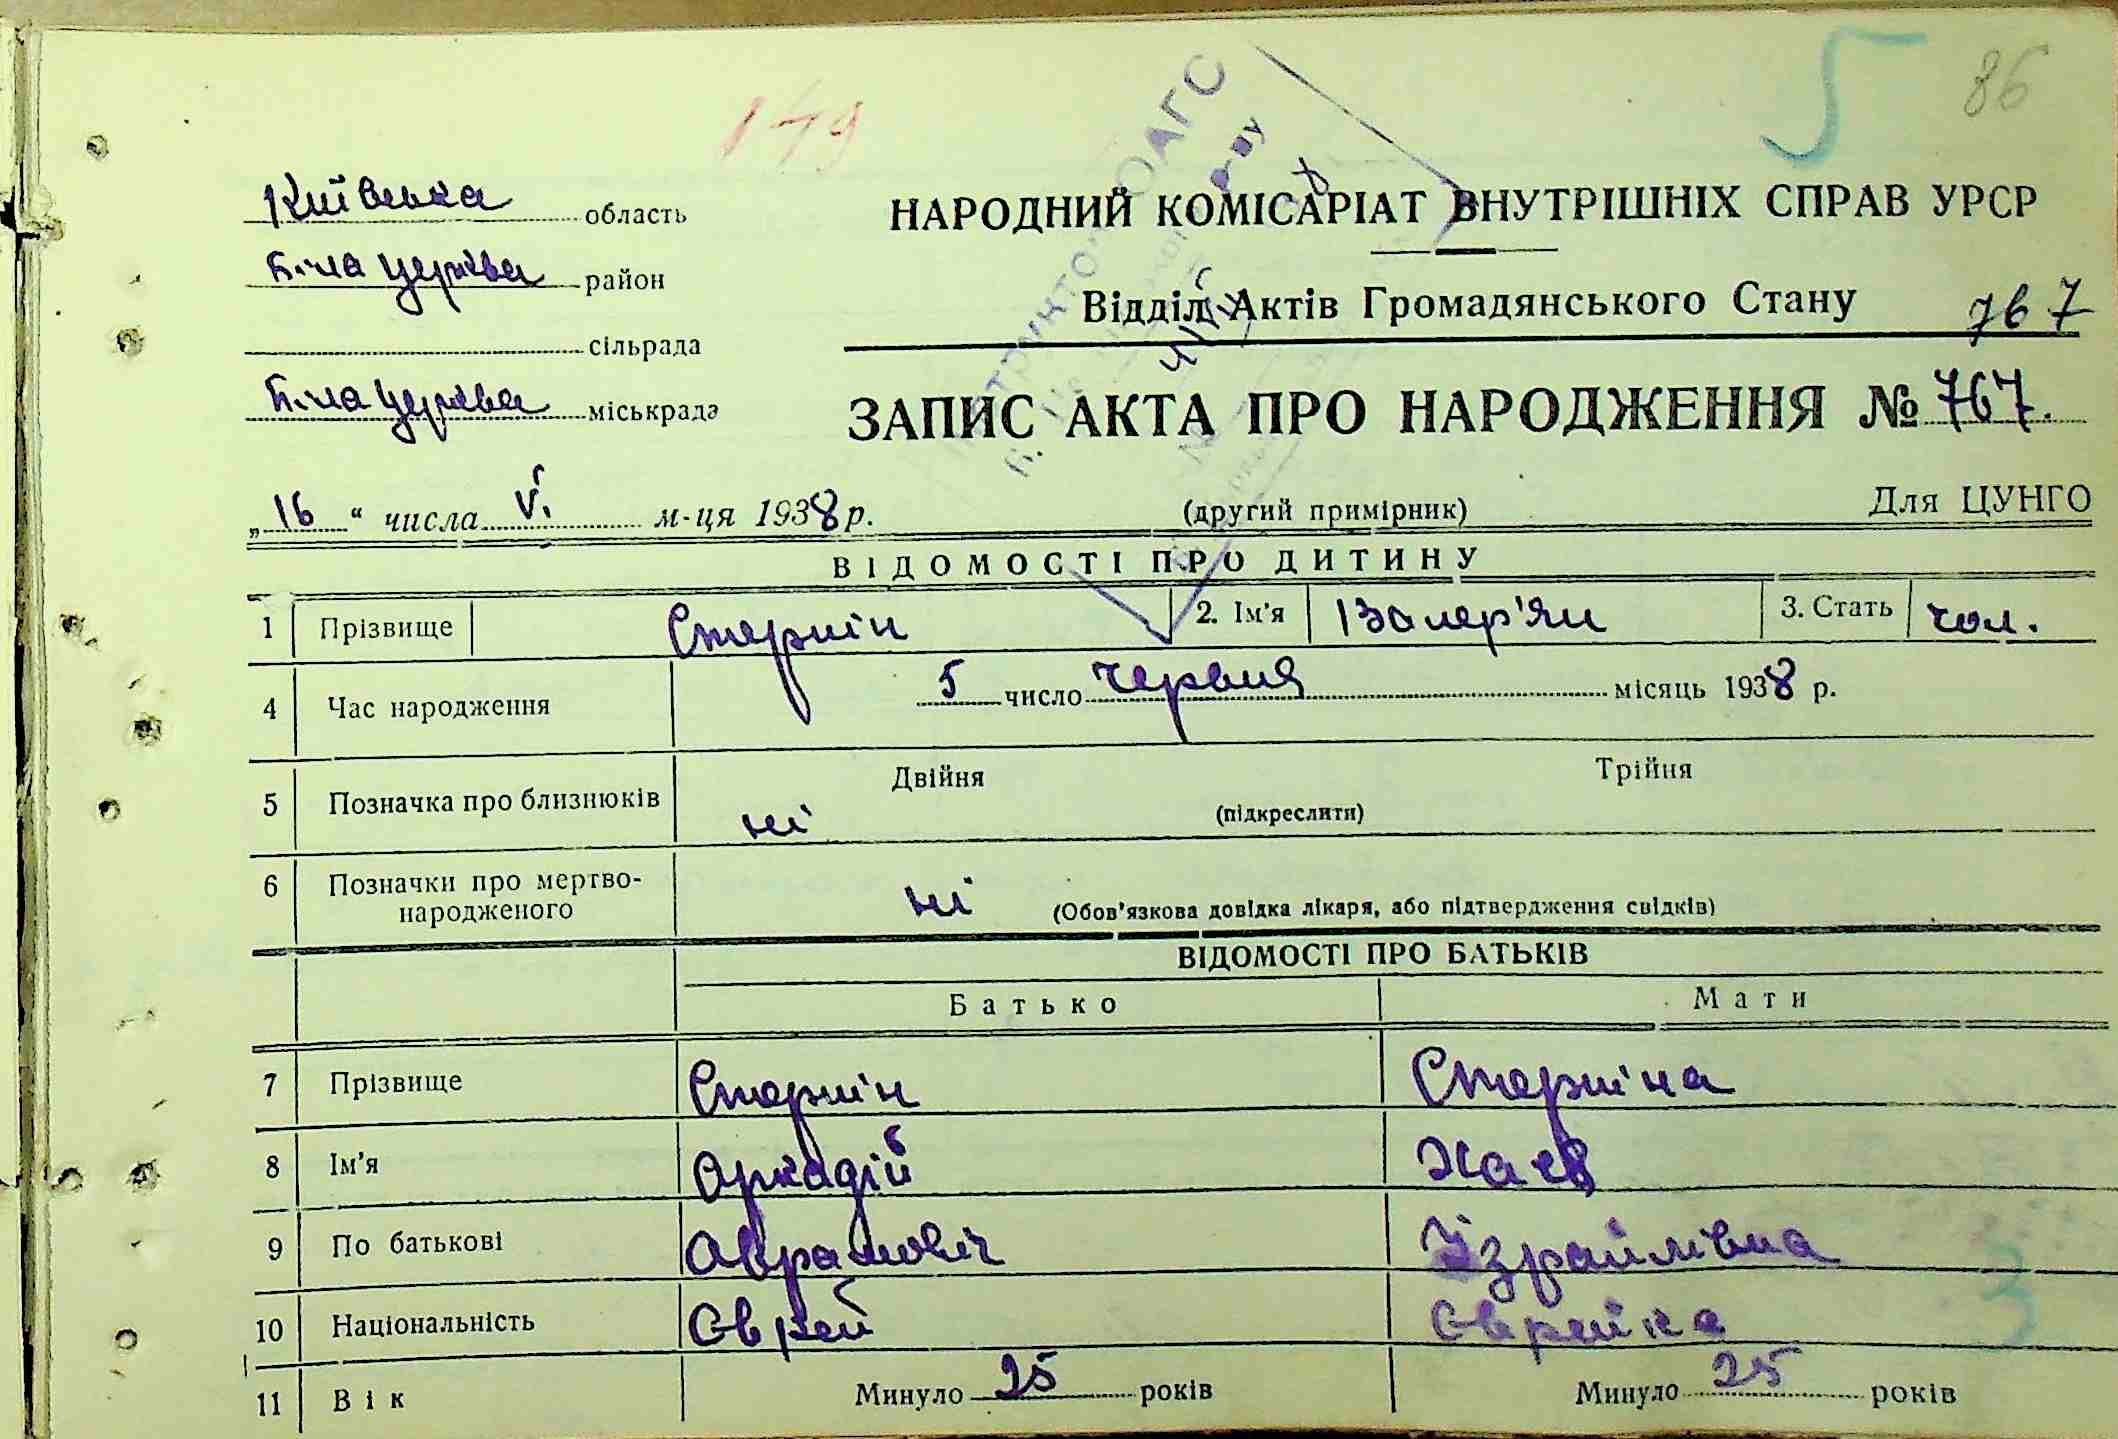 179
5
86
Київська область
Біла Церква район
сільрада
Біла Церква міськрада
НАРОДНИЙ КОМІСАРІАТ ВНУТРІШНІХ СПРАВ УРСР
Відділ Актів Громадянського Стану
767
ЗАПИС АКТА ПРО НАРОДЖЕННЯ № 767.
„16“ числа VI. м-ця 1938 р.
(другий примірник)
Для ЦУНГО
ВІДОМОСТІ ПРО ДИТИНУ
1 Прізвище Стерин 2. Ім'я Валер'ян 3. Стать чол.
4 Час народження 5 число червня місяць 1938 р.
5 Позначка про близнюків ні Двійня Трійня
(підкреслити)
6 Позначки про мертво-
народженого ні (Обов'язкова довідка лікаря, або підтвердження свідків)
ВІДОМОСТІ ПРО БАТЬКІВ
Батько Мати
7 Прізвище
8 Ім'я Аркадій Хая
9 По батькові Аврамовіч Ізрайлівна
10 Національність Єврей Єврейка
11 Вік Минуло 25 років Минуло 25 років